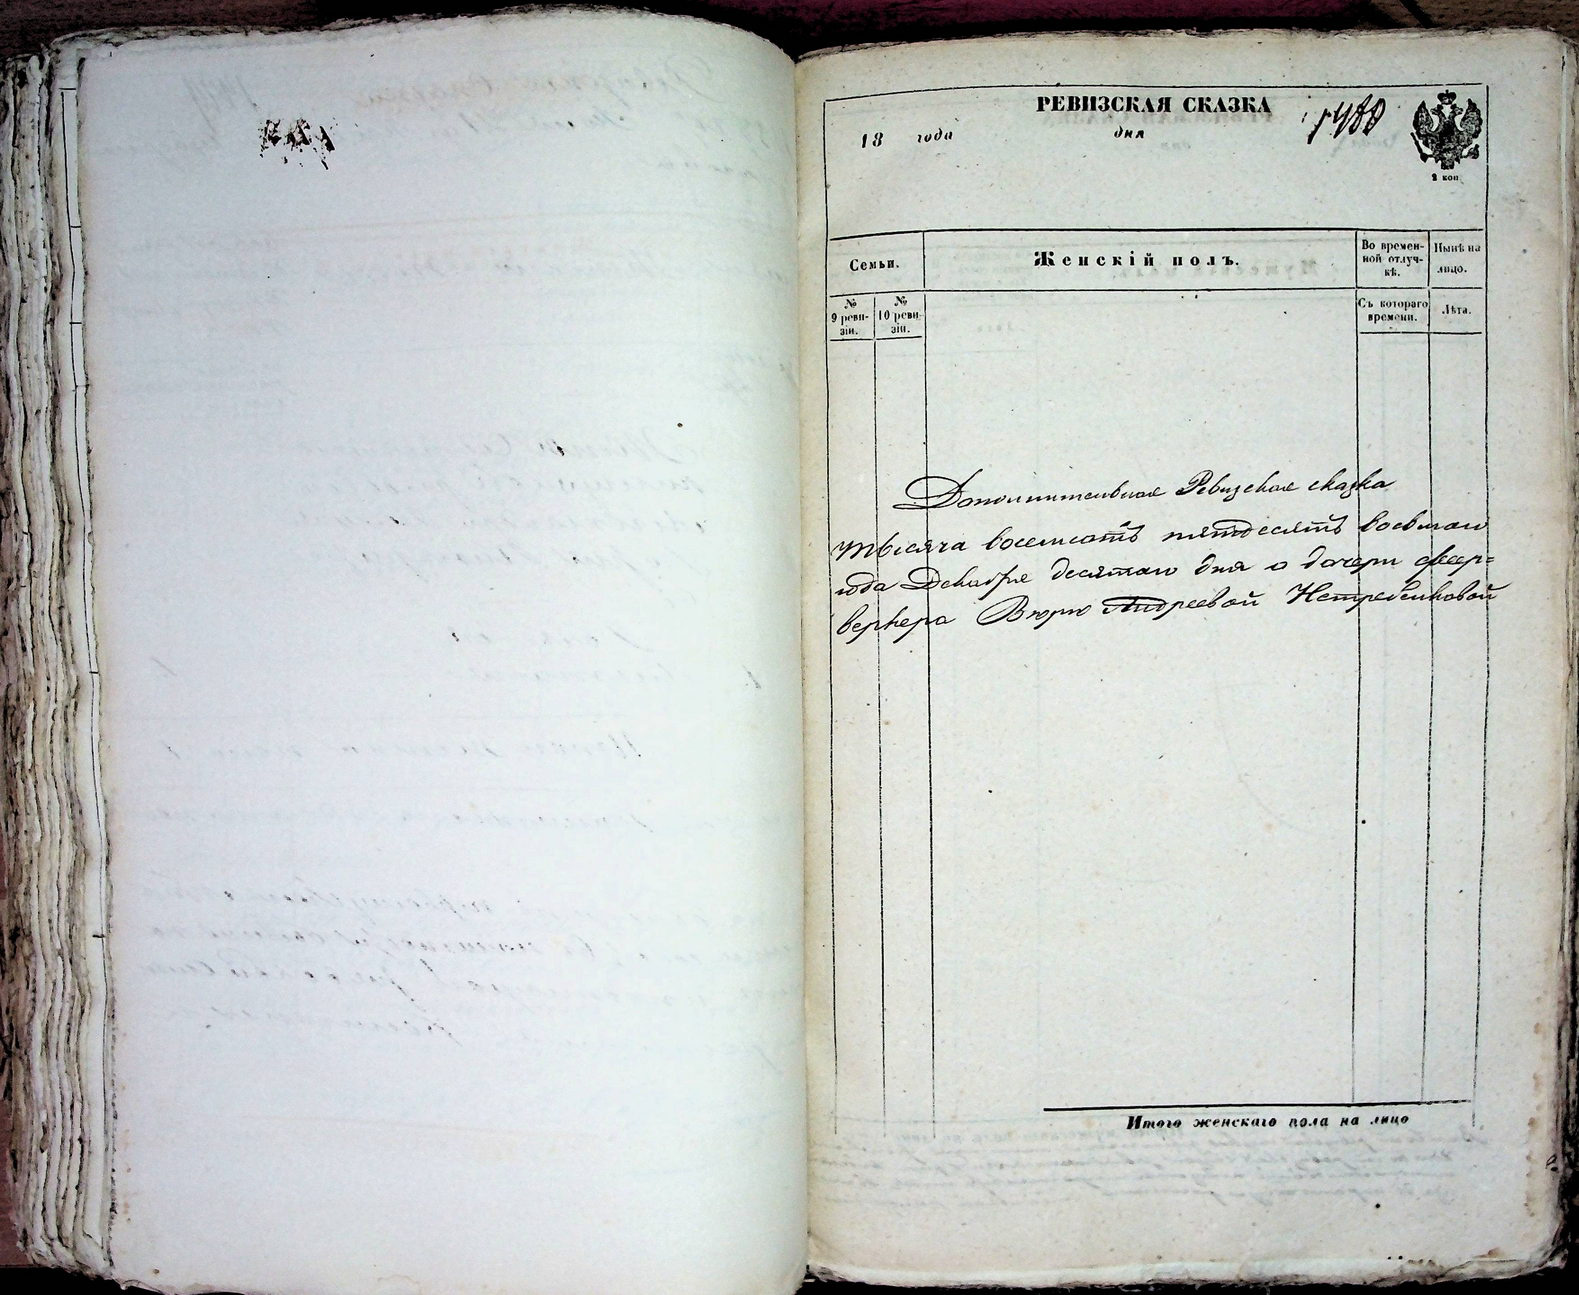 РЕВИЗСКАЯ СКАЗКА
1480
18 года дня
2 коп
Семьи.
Женскій полъ.
Во времен-
ной отлуч-
кѣ.
Нынѣ на
лицо.
№
9 реви-
зіи.
№
10 реви
зіи.
Съ котораго
времени.
Лѣта.
Дополнительная Ревизская сказка
тысяча восемсотъ пятдесятъ восьмаго
года Декабря десятаго дня о дочери феер-
веркера Андреевой Нетребенковой
Итого женскаго пола на лицо